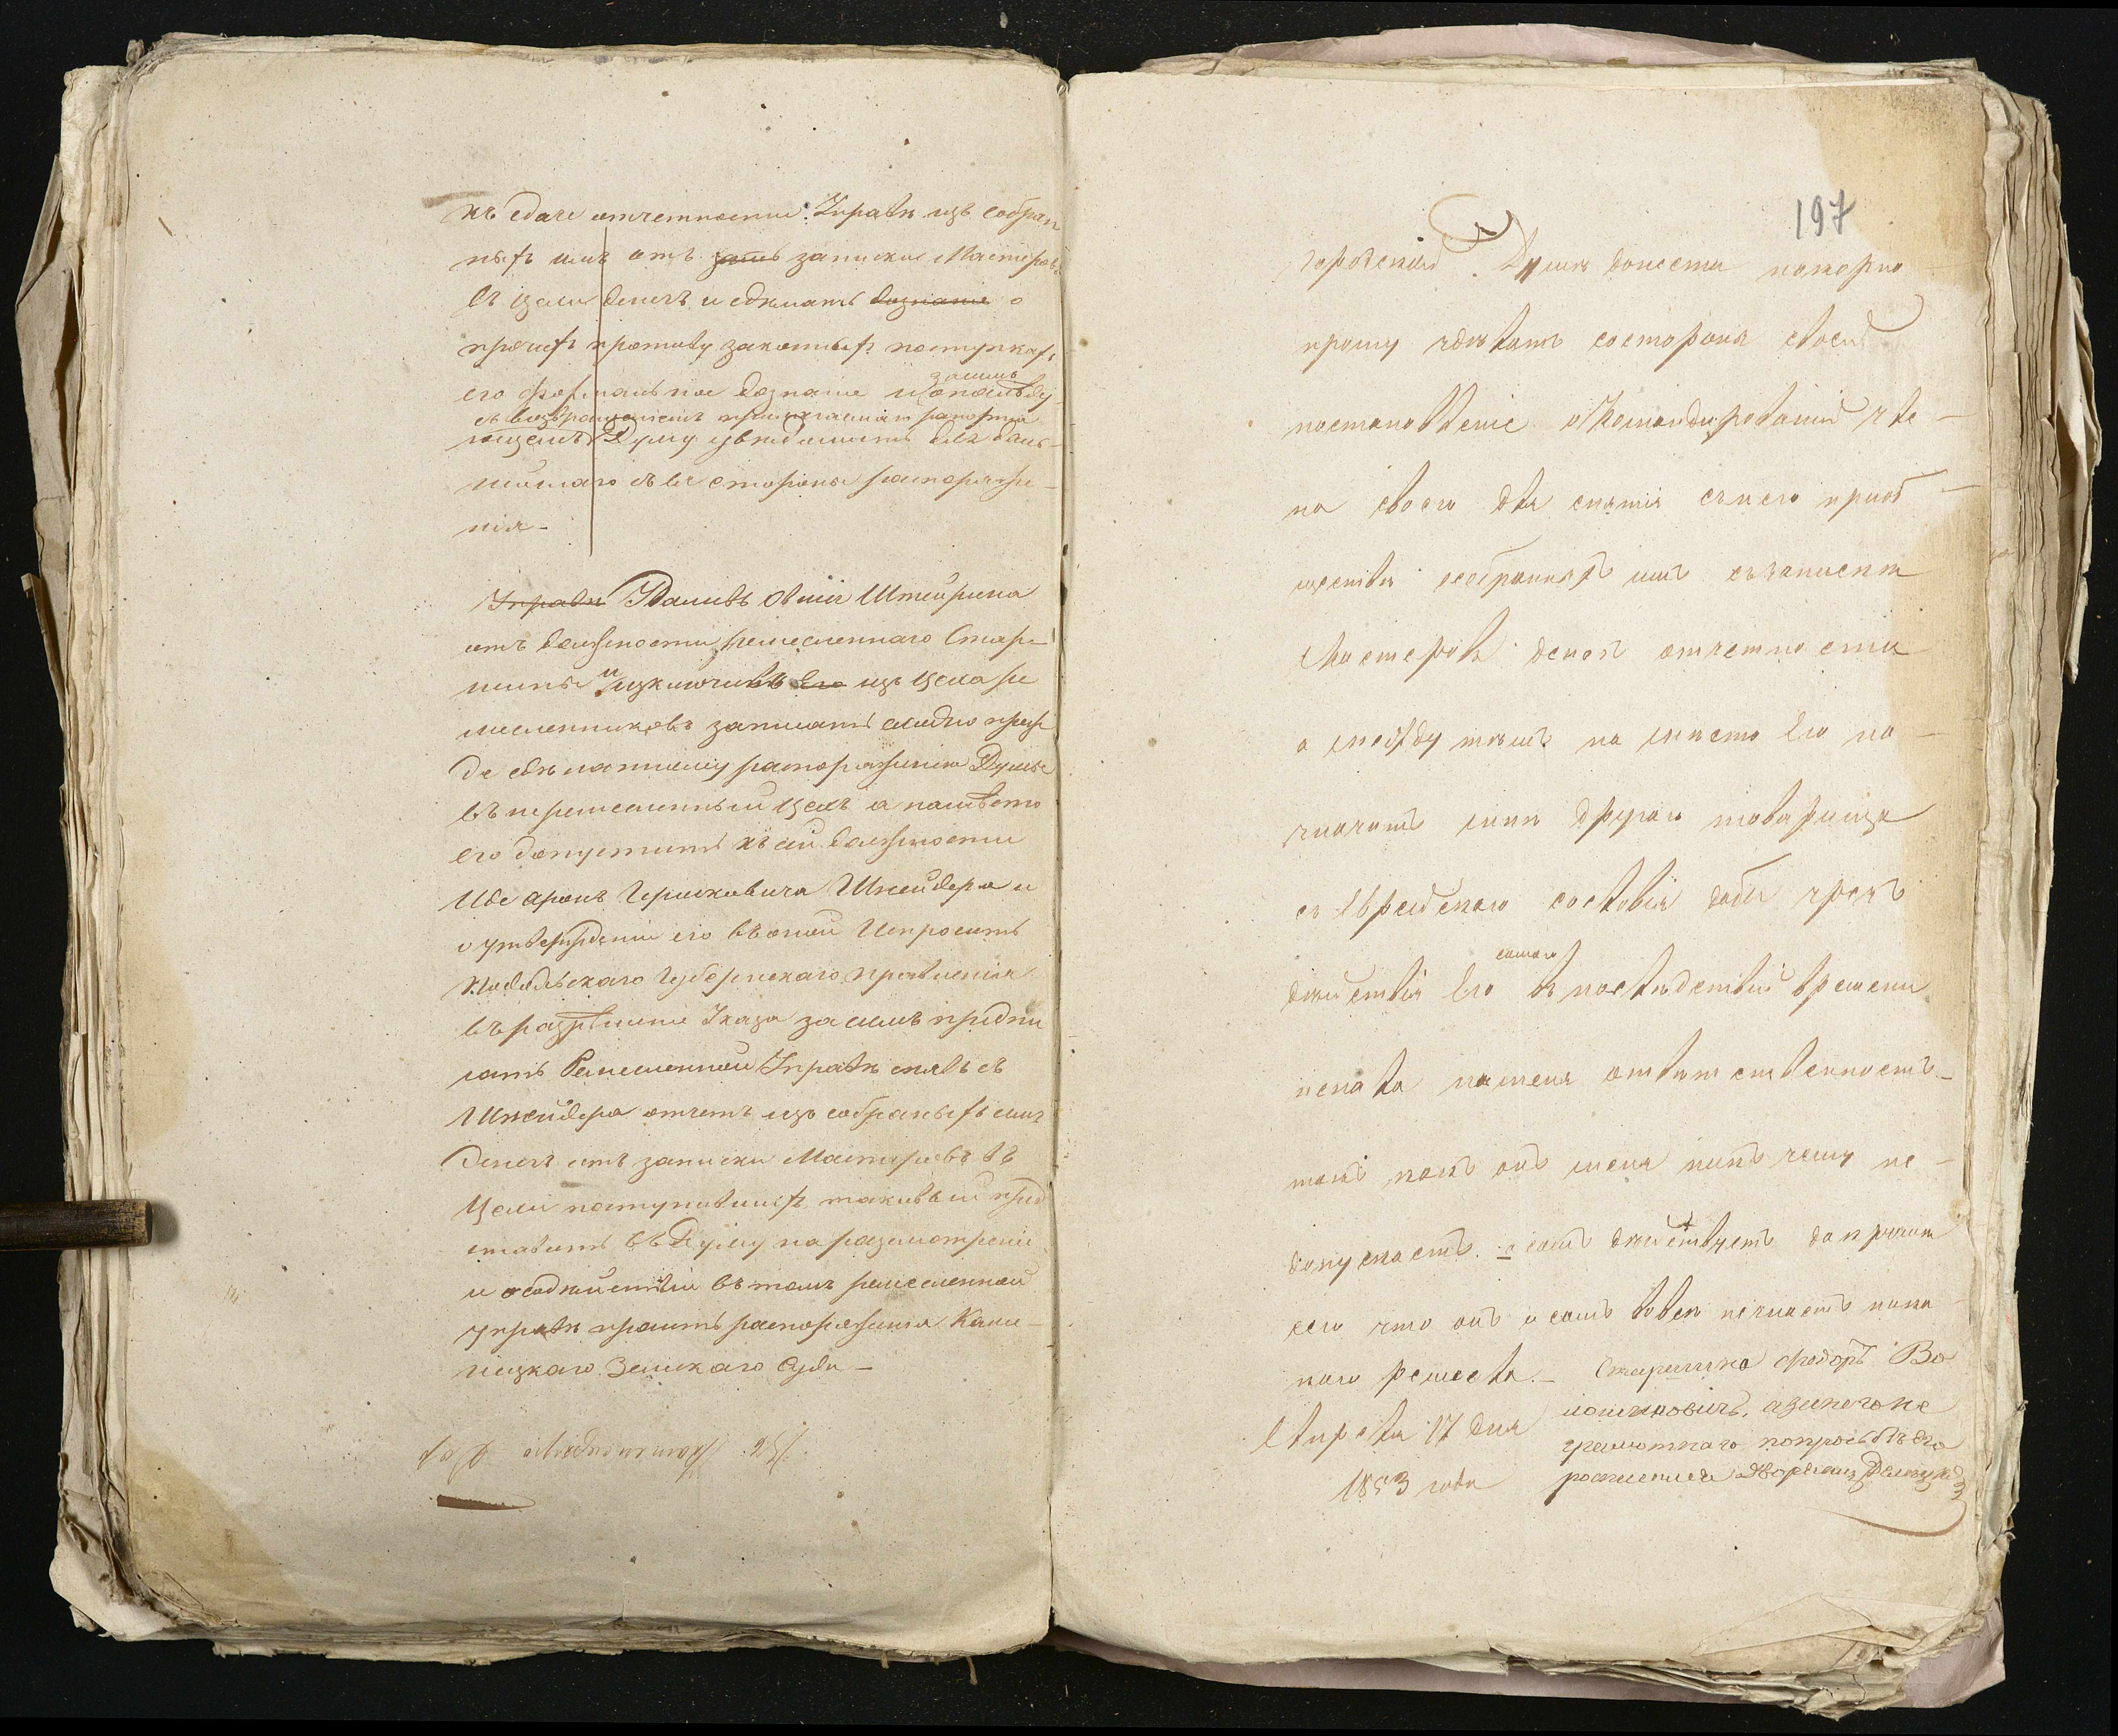 къ сдаче отчетности Управѣ изъ собран
ныхъ имъ отъ записки Мастеровъ
въ цели денегъ и сдѣлать дознание о
прочихъ противу законныхъ поступкахъ
его формальное дознание
залишъ
съ возвращениемъ рапорта
Думу увѣдомить для даль-
нейшаго съ ея стороны распоряже-
нія -
Управѣ Удаливъ Овшія Штейрмана
отъ должности ремесленнаго Старе
шины и изключивъ Его изъ цеха ре
месленниковъ записать преж
де сдѣланному распоряженію Думы
въ неремесленный цехъ а намѣсто
его допустить къ сей должности
Иде Арона Гершковича Шнейдера и
о утвержденіи его въ оной Испросить
Подольскаго Губернскаго Правленія
въ разрѣшеніе Указа за симъ предпи
сать Ремесленной Управѣ снявъ съ
Шнейдера отчетъ изъ собраныхъ имъ
денегъ отъ записки Мастеровъ въ
Цехи поступившихъ таковый пред
ставить въ Думу на разсмотреніе
и о содѣйствіи въ томъ ремесленной
управѣ просить распоряженія Каме-
нецкаго Земскаго Суда -
197
городской Думѣ донести покорно
прошу здѣлать состороны своей
постановленіе о командированіи чле-
на своего для снятія съ него приоб
щества собранныхъ имъ съ записки
Мастеровъ денегъ отчетности
а между тѣмъ на место Его на-
значить мнѣ другаго товарища
съ Еврейскаго сословія дабы чрезъ
самаго
дѣйствія Его въ послѣдствіи времени
непала на меня ответственность
такъ какъ онъ меня ни къ чему не-
допускаетъ а самъ дѣйствуетъ
сего что онъ и самъ вовсе незнаетъ ника
каго ремесла. - Старшина Федоръ Во
Апреля 17 дня
грамотнаго попросьбѣ его
1853 года росписался Дворянинъ